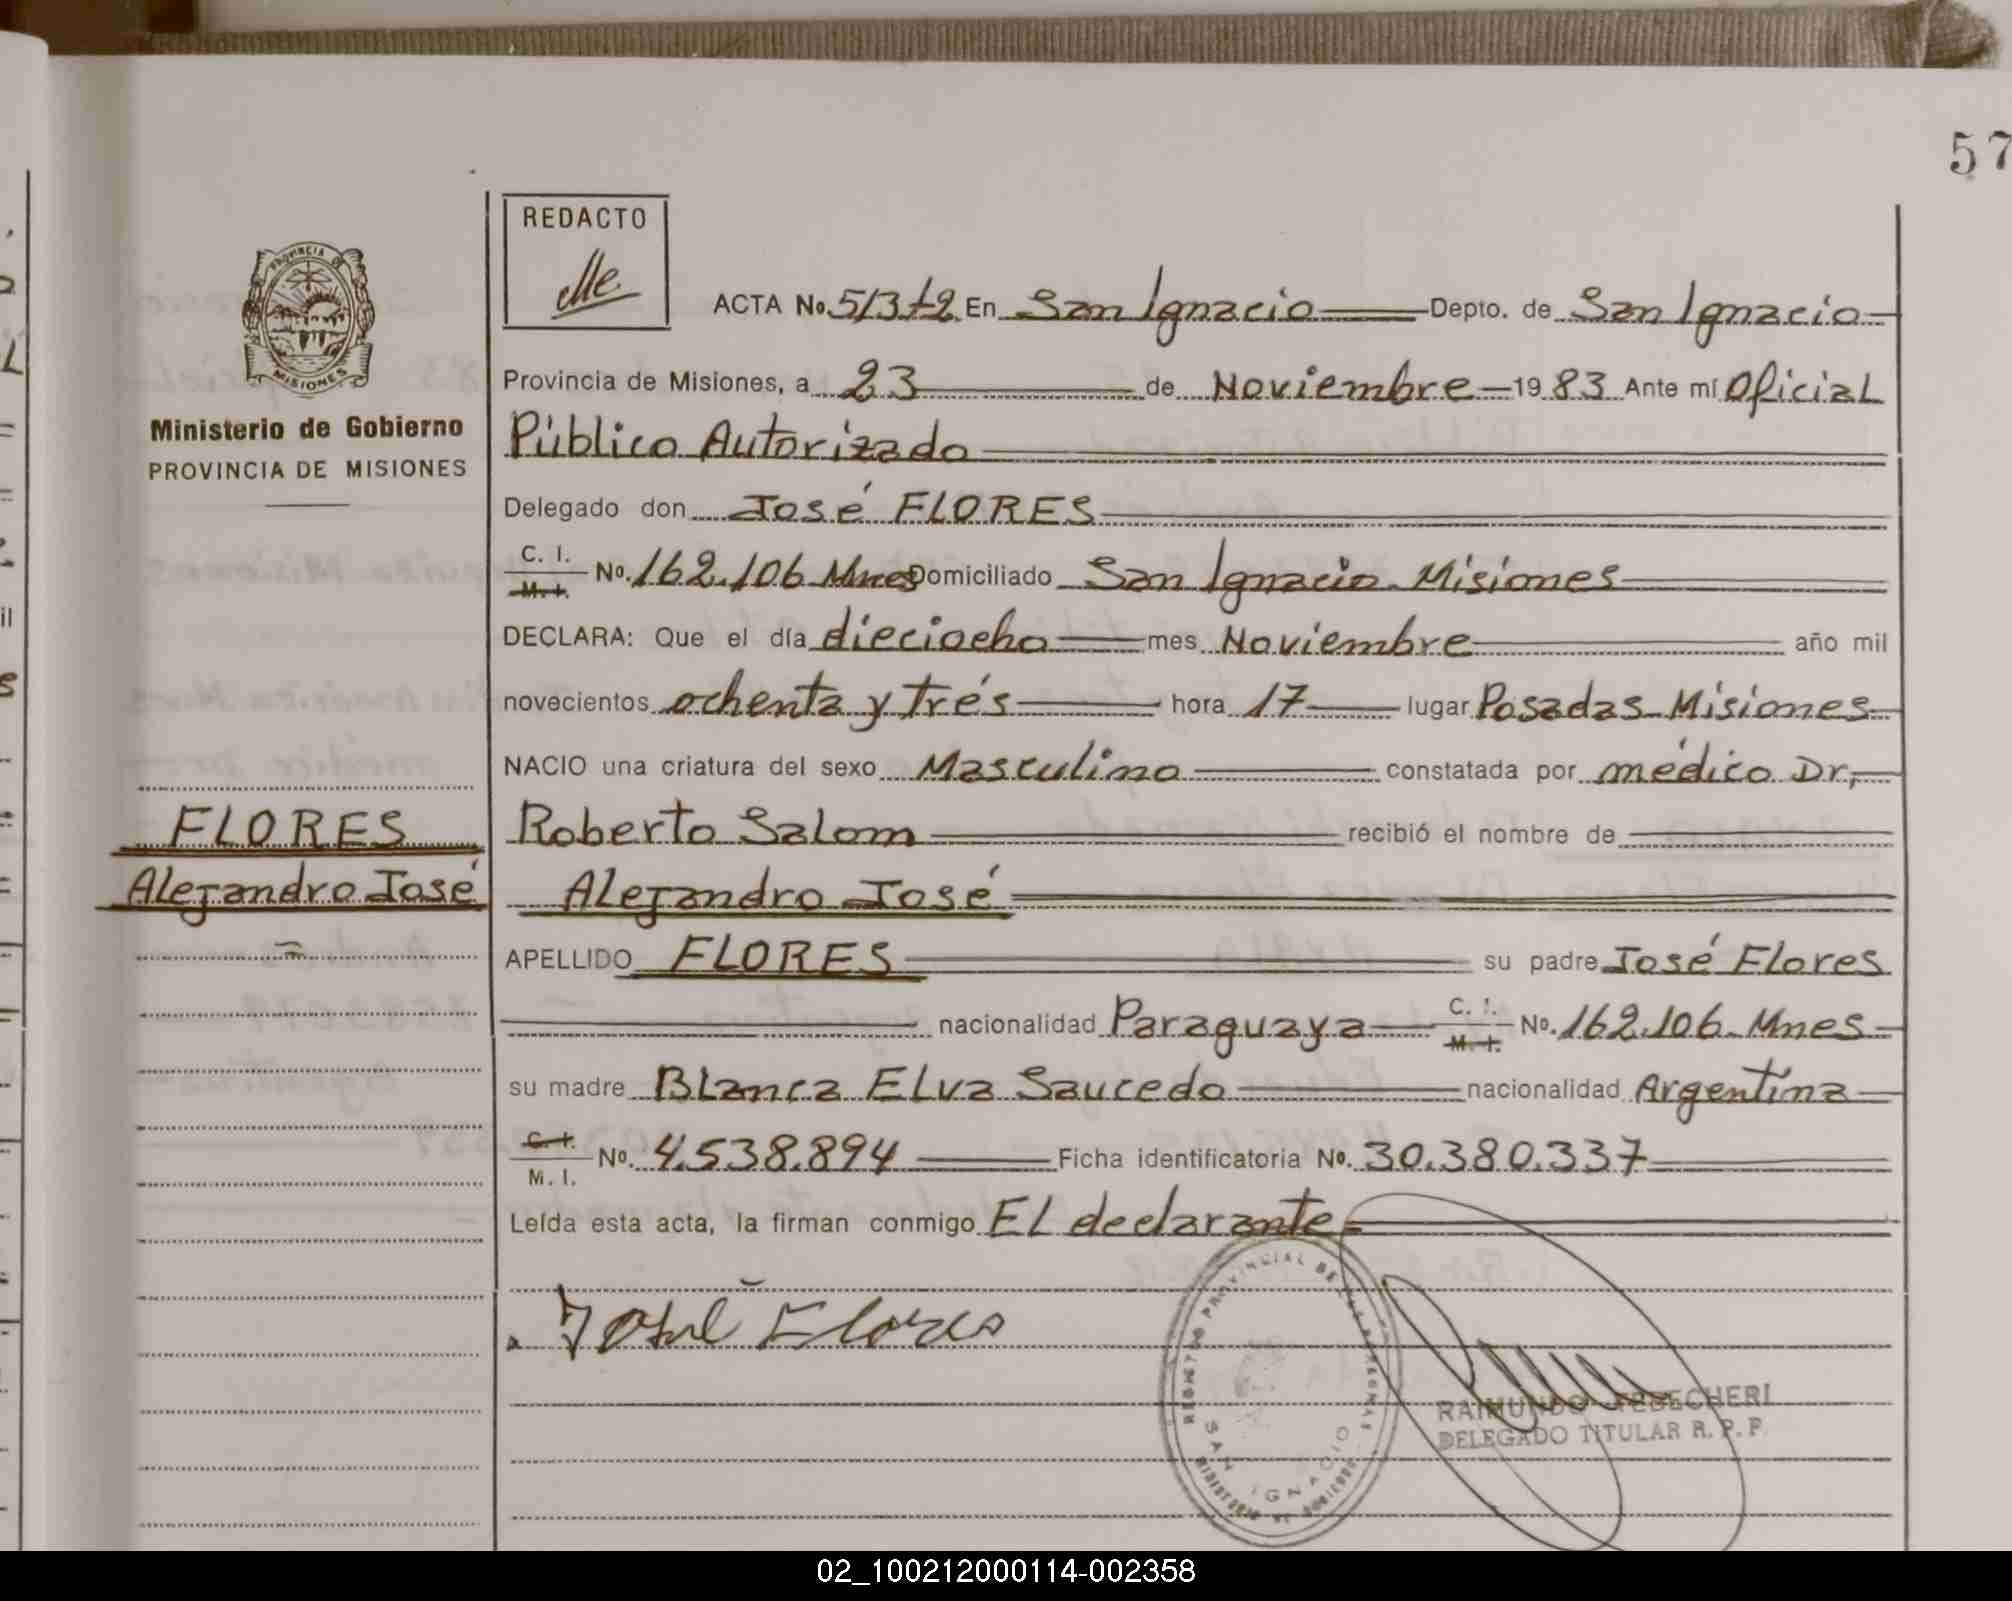 57
REDACTO
PROVINCIA DE
MISIONES
Ministerio de Gobierno
PROVINCIA DE MISIONES
ACTA No. En San Ignacio Depto. de San Ignacio
Provincia de Misiones, a 23 de Noviembre 1983 Ante mí Oficial
Público Autorizado
Delegado don José FLORES
C. I. M. I. No. 162.106 Mnes Domiciliado San Ignacio Misiones
DECLARA: Que el día dieciocho mes Noviembre año mil
novecientos ochenta y trés hora 17 lugar Posadas Misiones
NACIO una criatura del sexo Masculino constatada por médico Dr,
Roberto Salom recibió el nombre de
FLORES
Alejandro José
Alejandro José
APELLIDO FLORES su padre José Flores
nacionalidad Paraguaya C. I. M. I. No. 162.106 Mnes
su madre Blanca Elva Saucedo nacionalidad Argentina
C. I. M. I. No. 4.538.894 Ficha identificatoria No. 30.380.337
Leída esta acta, la firman conmigo El declarante
José Flores
REGISTRO PROVINCIAL DE LAS PERSONAS
SAN IGNACIO
MINISTERIO DE GOBIERNO
RAIMUNDO
DELEGADO TITULAR R. P. P.
02_100212000114-002358